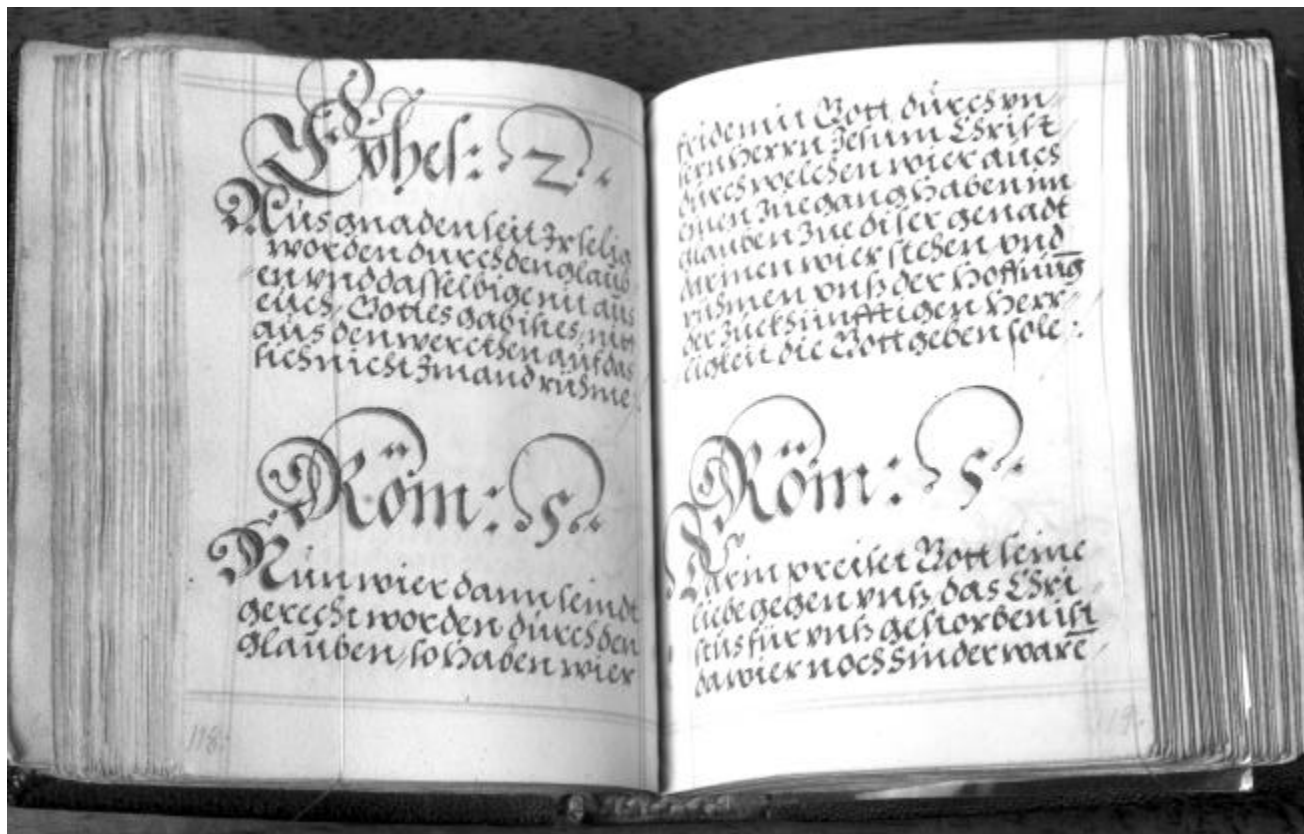 Ephes: 2
Aus gnaden seit Ir selig
worden durch den glaub
en vnd dasselbige nit aus
euch / Gottes gab ist es, nitt
aus den werckhen auf das
sich nicht Imand rühme:
Röm: 5
Nun wier dann seindt
gerecht worden durch den
glauben, so haben wier
118.
fride mit Gott durch vn
sern Herrn Jesum Christ
durch welchen wier auch
einen Zuegang haben im
glauben Zue diser genadt
darinen wier stehen vnd
rühmen vnß der Hoffnūg
der Zuekhünfftigen Herr
ligkeit die Gott geben sole:
Röm: 5
Darin preiset Gott seine
liebe gegen vnß das Chri
stus für vnß gestorben ist
da wier noch Sinder warē
119.